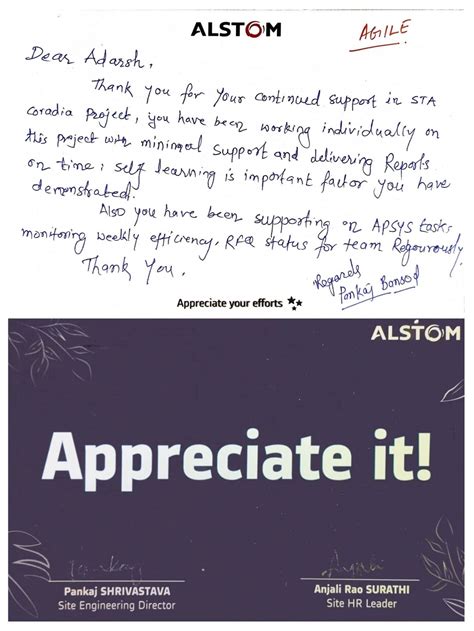 ALSTOM
AGILE
Dear Adarsh,
Thank you for your continued support in STA
coradia project, you have been working individually on
this project with mininal support and delivering Reports
on time, self learning is important factor you have
demonstrated.
Also you have been supporting on APSYS tasks
monitoring weekly efficiency, RFQ status for team Regourously.
Thank you.
Regards
Pankaj Bansod
Appreciate your efforts
ALSTOM
Appreciate it!
Pankaj SHRIVASTAVA
Site Engineering Director
Anjali Rao SURATHI
Site HR Leader